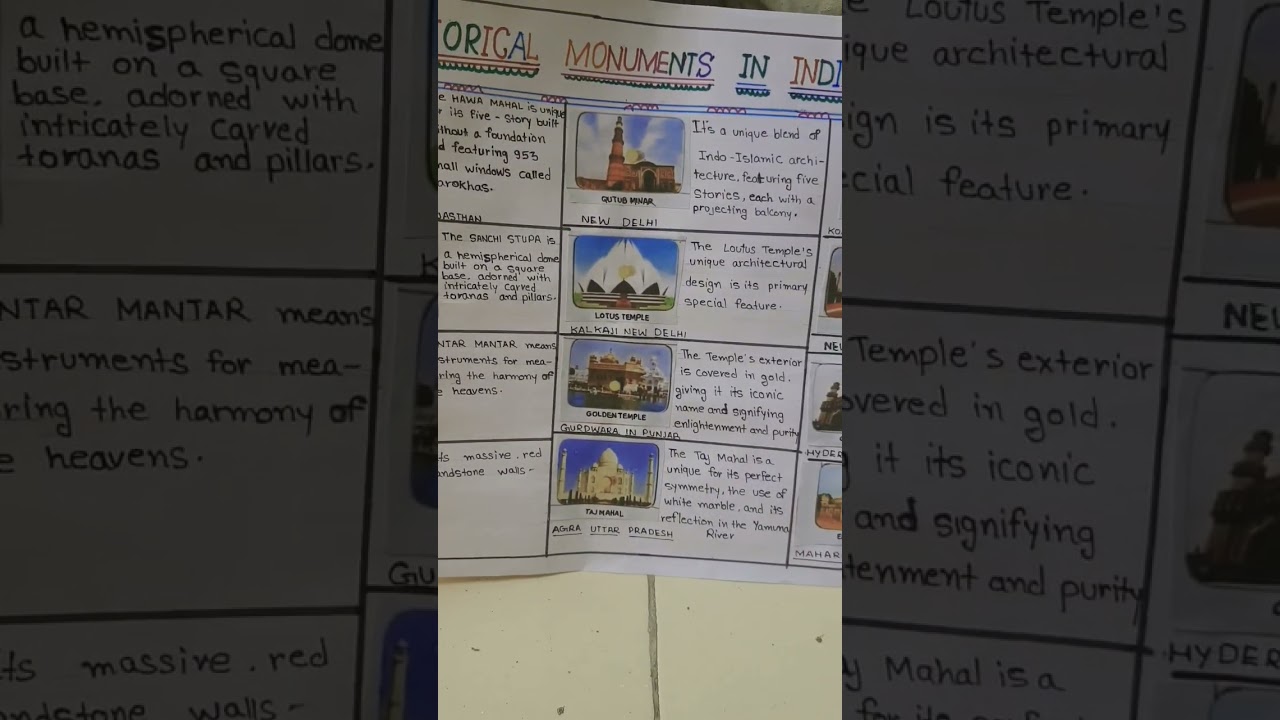 ORICAL MONUMENTS IN INDI
HAWA MAHAL is unique
its five - story built
without a foundation
featuring 953
small windows called
arokhas.
JASTHAN
The SANCHI STUPA is
a hemispherical dome
built on a square
base. adorned with
intricately carved
toranas and pillars.
NTAR MANTAR means
struments for mea-
ring the harmony of
e heavens.
ts massive. red
andstone walls-
QUTUB MINAR
NEW DELHI
It's a unique blend of
Indo-Islamic archi-
tecture, featuring five
Stories, each with a
projecting balcony.
LOTUS TEMPLE
KALKAJI NEW DELHI
The Loutus Temple's
unique architectural
design is its primary
special feature.
GOLDEN TEMPLE
GURDWARA IN PUNJAB
The Temple's exterior
is covered in gold.
giving it its iconic
name and signifying
enlightenment and purity
TAJ MAHAL
AGRA UTTAR PRADESH
The Taj Mahal is a
unique for its perfect
symmetry, the use of
white marble, and its
reflection in the Yamuna
River
KO
NE
HYDER
MAHAR
a hemispherical dome
built on a square
base. adorned with
intricately carved
toranas and pillars.
NTAR MANTAR means
struments for mea-
ring the harmony of
e heavens.
ts massive. red
ndstone walls-
GU
e Loutus Temple's
ique architectural
ign is its primary
cial feature.
Temple's exterior
overed in gold.
it its iconic
and signifying
tenment and purity
y Mahal is a
for its
NE
HYDER